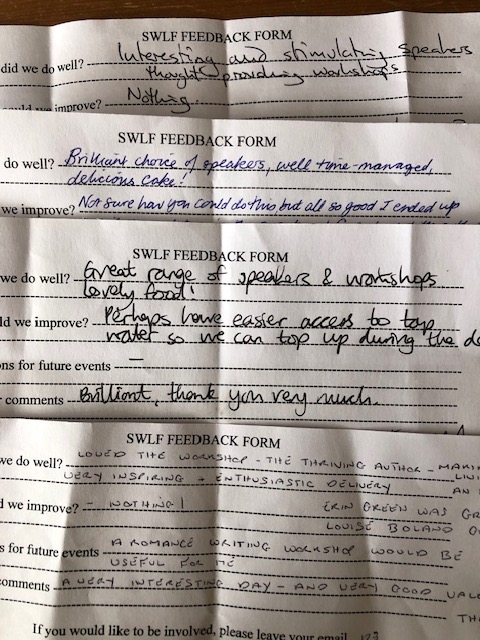 SWLF FEEDBACK FORM
did we do well? Interesting and stimulating speakers
thought providing workshops
improve? Nothing.
SWLF FEEDBACK FORM
do well? Brilliant choice of speakers, well time-managed,
delicious cake!
we improve? Not sure how you could do this but all so good I ended up
SWLF FEEDBACK FORM
we do well? Great range of speakers & workshops
Lovely food!
ld we improve? Perhaps have easier access to tap
water so we can top up during the da
ns for future events —
comments Brilliant, thank you very much.
SWLF FEEDBACK FORM
we do well? LOVED THE WORKSHOP - THE THRIVING AUTHOR - MAKI
LIVI
VERY INSPIRING + ENTHUSIASTIC DELIVERY AN
d we improve? - NOTHING! ERIN GREEN WAS GR
LOUISE BOLAND
s for future events A ROMANCE WRITING WORKSHOP WOULD BE
USEFUL FOR ME
omments A VERY INTERESTING DAY - AND VERY GOOD VALU
TH
If you would like to be involved, please leave your email